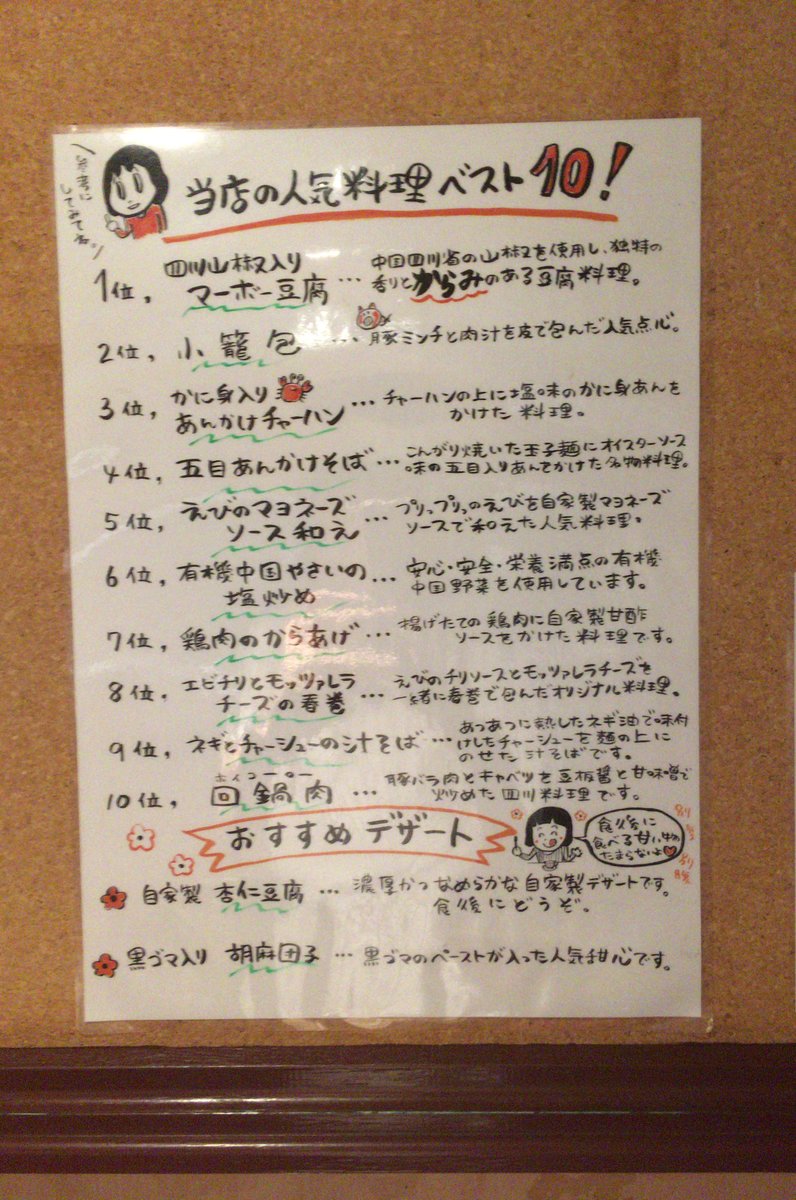 参考に
してみてね
当店の人気料理ベスト10!
四川山椒入り
1位, マーボー豆腐 … 中国四川省の山椒を使用し、独特の
香りとからみのある豆腐料理。
2位, 小籠包 … 豚ミンチと肉汁を皮で包んだ人気点心。
3位, かに身入り
あんかけチャーハン … チャーハンの上に塩味のかに身あんを
かけた料理。
4位, 五目あんかけそば … こんがり焼いた玉子麺にオイスターソース
味の五目入りあんでかけた名物料理。
5位, えびのマヨネーズ
ソース和え … プリップリのえびを自家製マヨネーズ
ソースで和えた人気料理。
6位, 有機中国やさいの
塩炒め … 安心・安全・栄養満点の有機
中国野菜を使用しています。
7位, 鶏肉のからあげ … 揚げたての鶏肉に自家製甘酢
ソースをかけた料理です。
8位, エビチリとモッツァレラ
チーズの春巻 … えびのチリソースとモッツァレラチーズを
一緒に春巻で包んだオリジナル料理。
9位, ネギとチャーシューの汁そば … あつあつに熱したネギ油で味付
けしたチャーシューを麺の上に
のせた汁そばです。
ホイコーロー
10位, 回鍋肉 … 豚バラ肉とキャベツを豆板醤と甘味噌で
炒めた四川料理です。
おすすめデザート
食後に
食べる甘い物
たまらないよ
自家製 杏仁豆腐 … 濃厚かつなめらかな自家製デザートです。
食後にどうぞ。
黒ゴマ入り 胡麻団子 … 黒ゴマのペーストが入った人気甜心です。